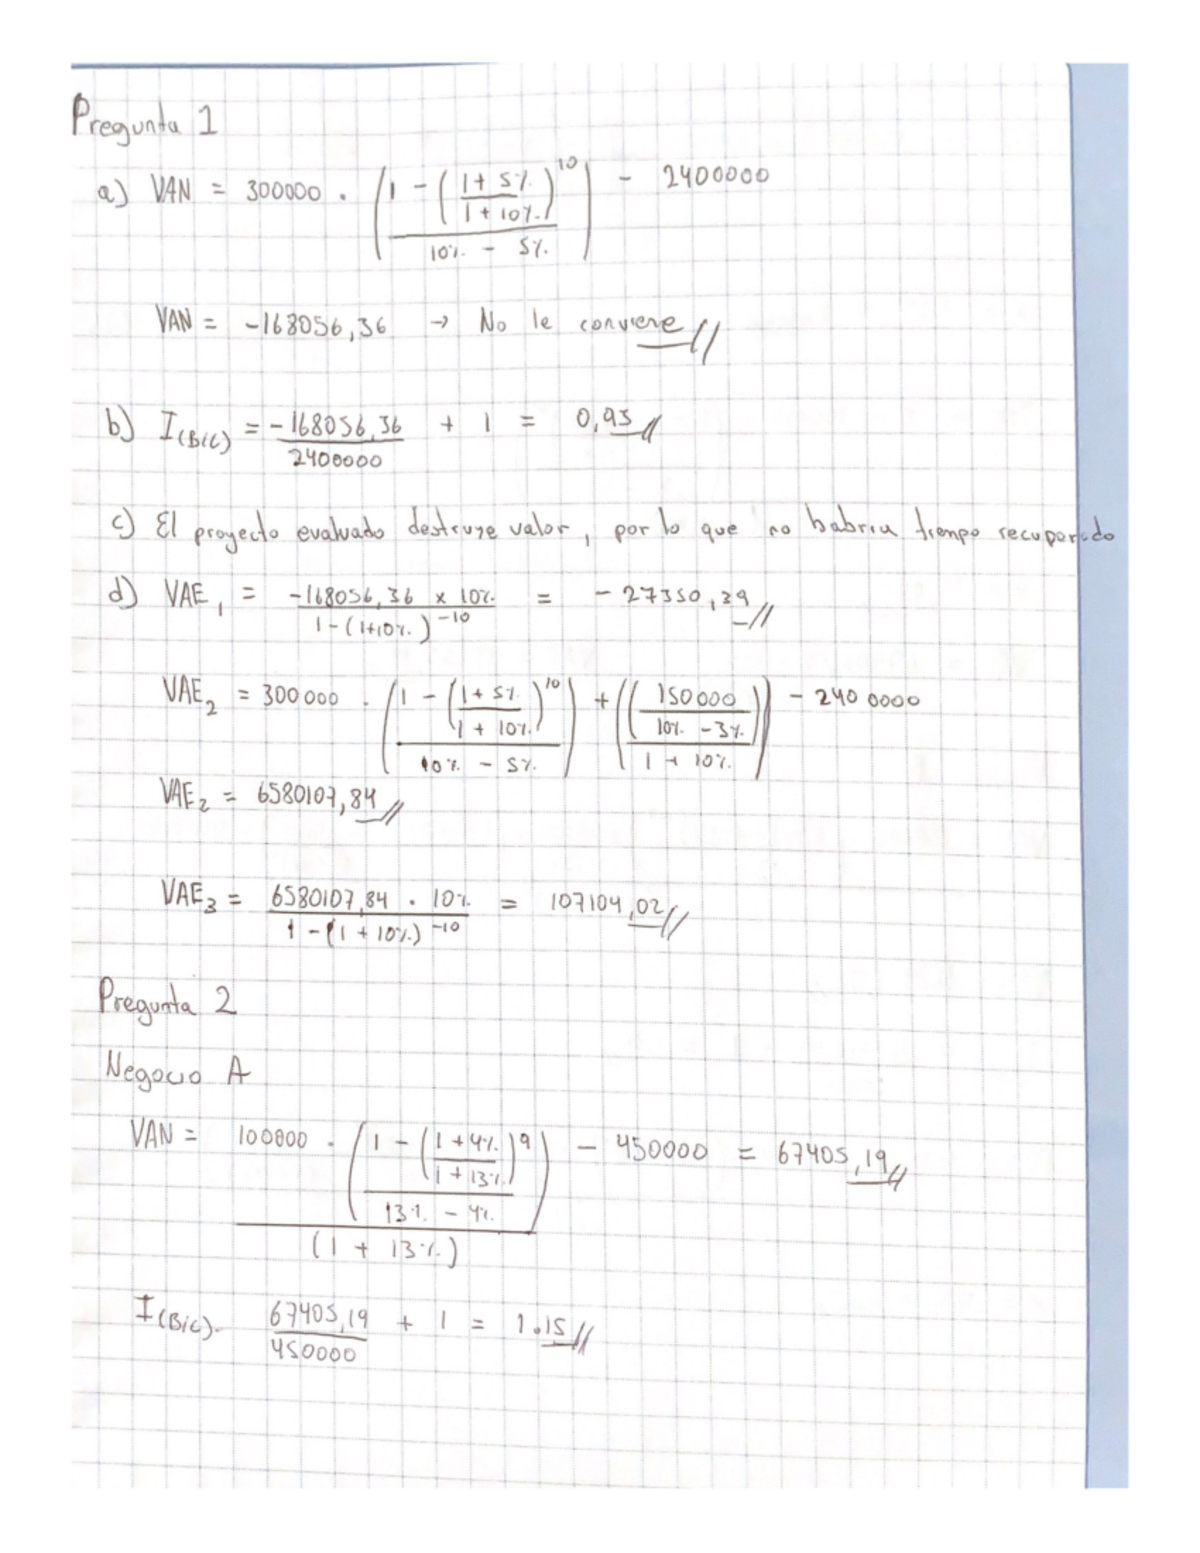 Pregunta 1
a) VAN = 300000 . ((1 - ((1 + 5%)/(1 + 10%))^10)/(10% - 5%)) - 2400000
VAN = -168056,36 → No le conviene
b) I(B/C) = -168056,36/2400000 + 1 = 0,93
c) El proyecto evaluado destruye valor, por lo que no habria tiempo recuperado
d) VAE1 = (-168056,36 x 10%)/(1-(1+10%)^-10) = -27350,39
VAE2 = 300000 . ((1 - ((1 + 5%)/(1 + 10%))^10)/(10% - 5%)) + ((150000/(10% - 3%))/(1 + 10%)) - 2400000
VAE2 = 6580107,84
VAE3 = (6580107,84 . 10%)/(1 - (1 + 10%)^-10) = 107104,02
Pregunta 2
Negocio A
VAN = (100000 . ((1 - ((1 + 4%)/(1 + 13%))^9)/(13% - 4%)))/(1 + 13%) - 450000 = 67405,19
I(B/C). 67405,19/450000 + 1 = 1.15